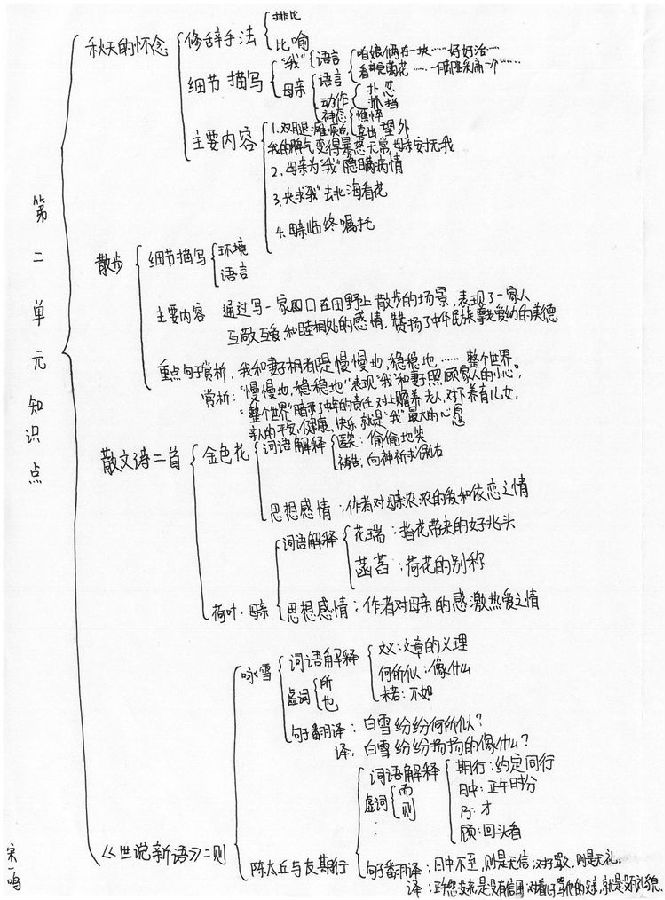 第二单元知识点
秋天的怀念
修辞手法
排比
比喻
细节描写
"我"
语言
咱娘俩在一块……好好活……
母亲
语言
看看菊花
动作
扑 忍
抓 挡
神态
憔悴
喜出望外
主要内容
1.双腿瘫痪后
我的脾气变得暴怒无常,母亲安抚我
2.母亲为"我"隐瞒病情
3.央求"我"去北海看花
4.母亲临终嘱托
散步
细节描写
环境
语言
主要内容 通过写一家四口在田野上散步的场景,表现了一家人
互敬互爱,和睦相处的感情,赞扬了中华民族尊老爱幼的美德
重点句子赏析,我和妻子都是慢慢地,稳稳地,……整个世界
赏析:"慢慢地,稳稳地"表现"我"和妻照顾家人的小心。
"整个世界"暗示了中年的责任对上赡养老人,对下养育儿女,
家人的平安、健康、快乐就是"我"最大的心愿
散文诗二首
金色花
词语解释
匿笑:偷偷地笑
祷告:向神祈求保右
思想感情:作者对母亲浓浓的爱和依恋之情
荷叶·母亲
词语解释
花瑞:指花带来的好兆头
菡萏:荷花的别称
思想感情:作者对母亲的感激热爱之情
《世说新语》二则
咏雪
词语解释
文义:文章的义理
何所似:像什么
未若:不如
虚词
所
也
句子翻译:白雪纷纷何所似?
译:白雪纷纷扬扬的像什么?
陈太丘与友期行
词语解释
期行:约定同行
日中:正午时分
乃:才
顾:回头看
虚词
而
则
句子翻译:日中不至,则是无信;对子骂父,则是无礼。
宋一鸣